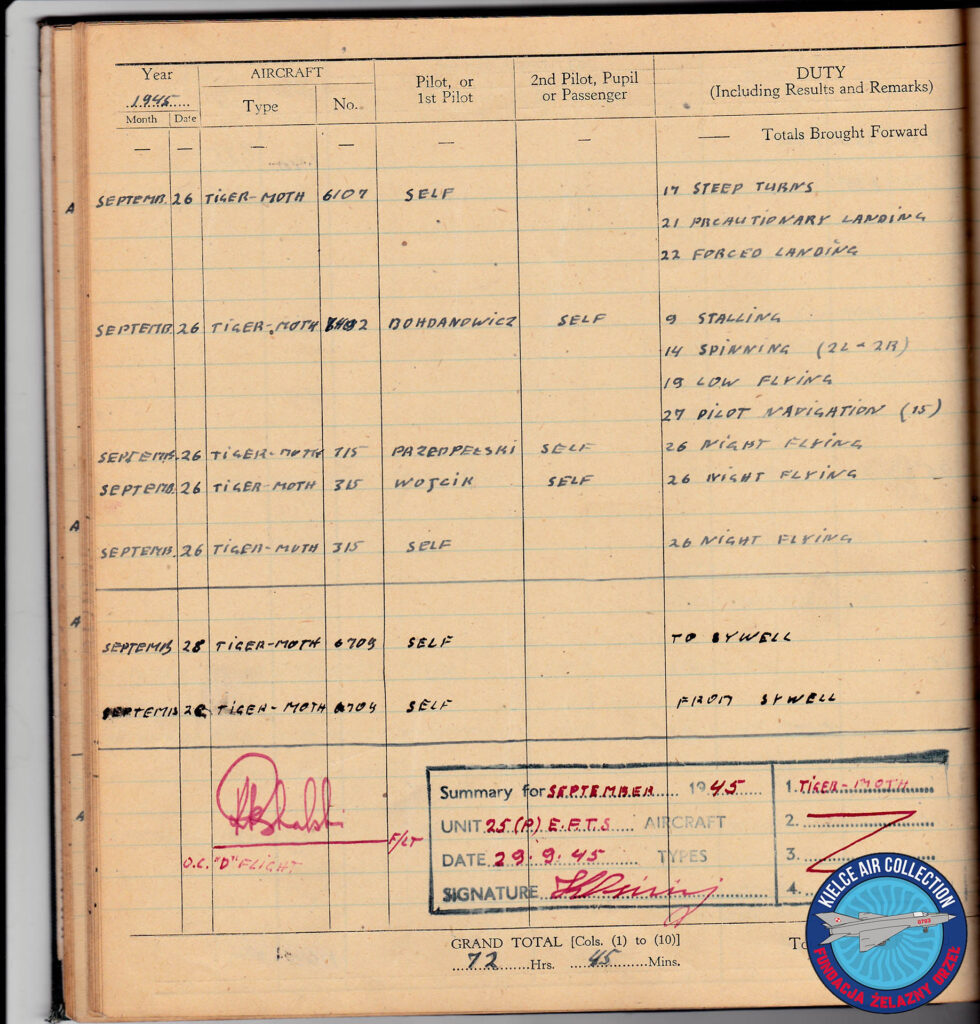 Year AIRCRAFT Pilot, or 1st Pilot 2nd Pilot, Pupil or Passenger DUTY (Including Results and Remarks)
1945 Type No.
Month Date
— — — — — — —— Totals Brought Forward
A SEPTEMB. 26 TIGER-MOTH 6107 SELF 17 STEEP TURNS
21 PRCAUTIONARY LANDING
22 FORCED LANDING
SEPTEMB. 26 TIGER-MOTH BOHDANOWICZ SELF 9 STALLING
14 SPINNING (2L - 2R)
19 LOW FLYING
27 PILOT NAVIGATION (15)
SEPTEMB. 26 TIGER-MOTH SELF 26 NIGHT FLYING
SEPTEMB. 26 TIGER-MOTH 315 WOJCIK SELF 26 NIGHT FLYING
A
SEPTEMB. 26 TIGER-MOTH 315 SELF 26 NIGHT FLYING
A
SEPTEMB 28 TIGER-MOTH 6709 SELF TO SYWELL
SEPTEMB TIGER-MOTH 6709 SELF FROM SYWELL
A
F/LT
O.C. "D" FLIGHT
Summary for SEPTEMBER 1945 1. TIGER-MOTH
UNIT 25 (P) E.F.T.S. AIRCRAFT 2.
DATE 29.9.45 TYPES 3.
SIGNATURE 4.
GRAND TOTAL [Cols. (1) to (10)]
72 Hrs. 45 Mins.
KIELCE AIR COLLECTION
0793
FUNDACJA ŻELAZNY ORZEŁ